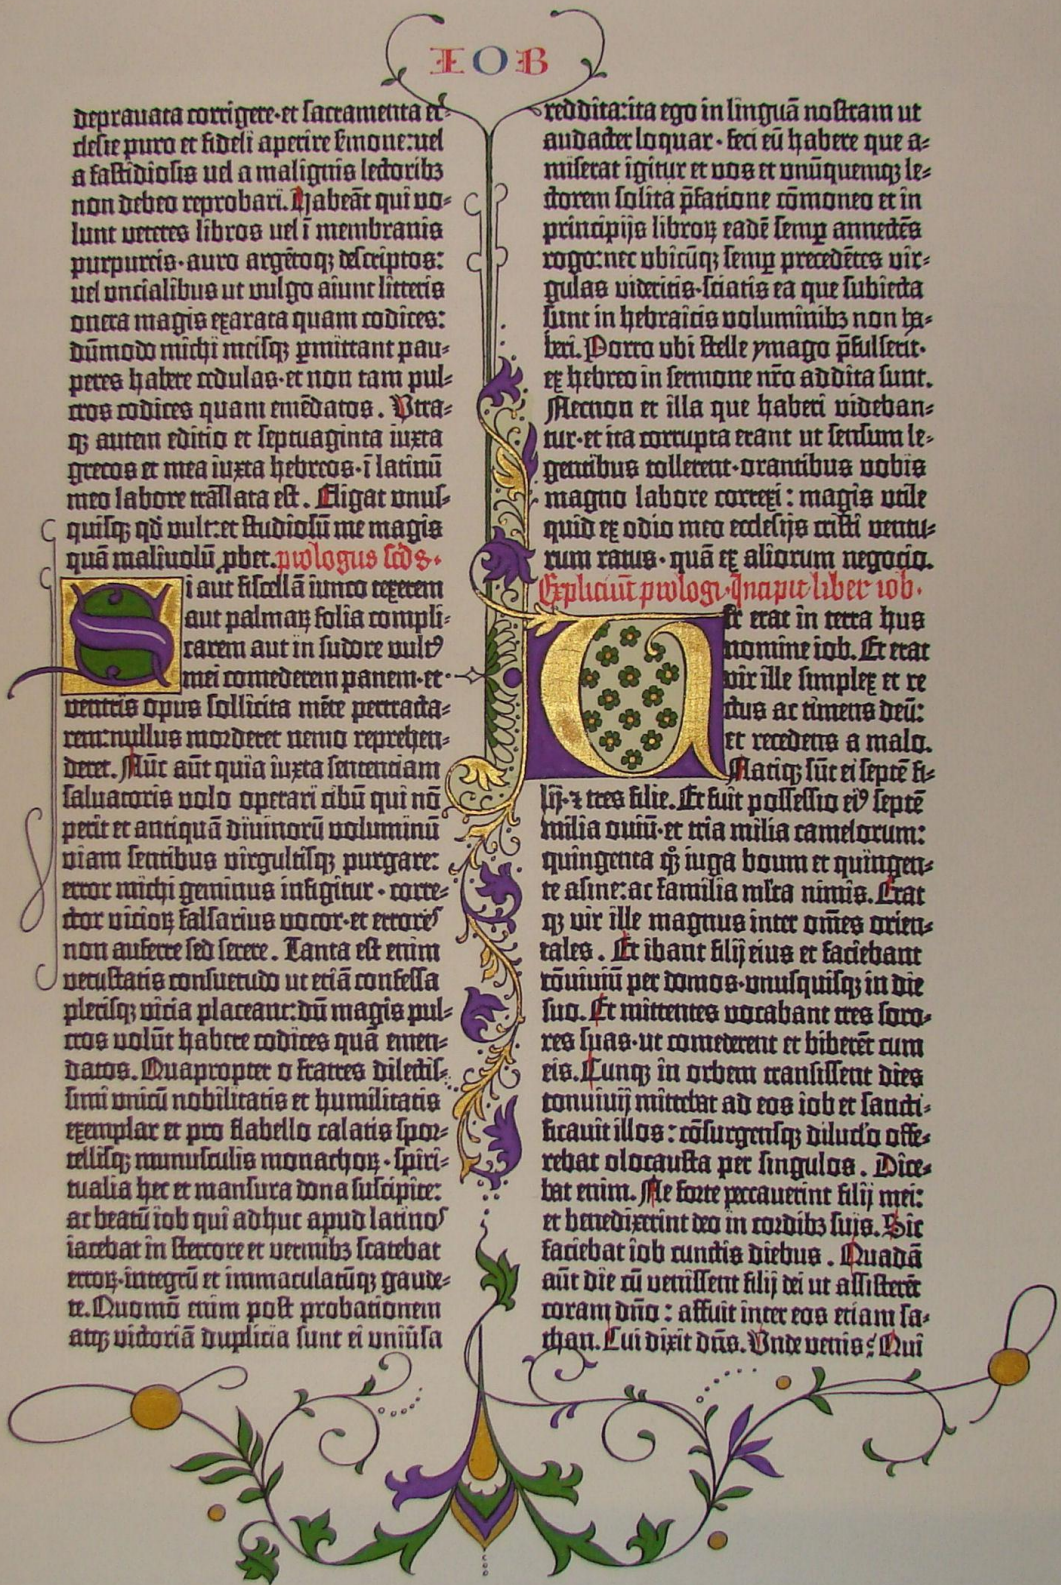 IOB
deprauata corrigere·et sacramenta ec-
clesie puro et fideli aperire s̃mone:uel
a fastidiosis uel a malignis lectoribꝫ
non debeo reprobari. Habeãt qui vo-
lunt veteres libros uel ĩ membranis
purpureis·auro argẽtoqꝫ descriptos:
uel vncialibus ut vulgo aiunt litteris
onera magis exarata quam codices:
dũmodo michi meisqꝫ ꝑmittant pau-
peres habere cedulas·et non tam pul-
cros codices quam emẽdatos. Vtra-
qꝫ autem editio et septuaginta iuxta
grecos et mea iuxta hebreos·ĩ latinũ
meo labore trãslata est. Eligat vnus-
quisqꝫ qd̃ vult:et studiosũ me magis
quã maliuolũ ꝓbet. prologus scd̃s·
Si aut fiscellã iunco texerem
aut palmaꝝ folia compli-
carem aut in sudore vultꝰ
mei comederem panem·et
ventris opus sollicita mẽte pertracta-
rem:nullus morderet nemo reprehen-
deret. Nũc aũt quia iuxta sentenciam
saluatoris volo operari cibũ qui nõ
perit et antiquã diuinorũ voluminũ
viam sentibus virgultisqꝫ purgare:
error michi geminus infigitur·corre-
ctor vicioꝝ falsarius vocor·et errores
non auferre sed serere. Tanta est enim
vetustatis consuetudo ut etiã confessa
plerisqꝫ vicia placeant:dũ magis pul-
cros volũt habere codices quã emen-
datos. Quapropter o fratres dilectis-
simi vnicũ nobilitatis et humilitatis
exemplar et pro flabello calatis spor-
tellisqꝫ munusculis monachoꝝ·spiri-
tualia hec et mansura dona suscipite:
ac beatũ iob qui adhuc apud latinos
iacebat in stercore et vermibꝫ scatebat
erroꝝ·integrũ et immaculatũqꝫ gaude-
te. Quomõ enim post probationem
atqꝫ victoriã duplicia sunt ei vniũsa
reddita:ita ego in linguã nostram ut
audacter loquar·feci eũ habere que a-
miserat igitur et vos et vnũquemqꝫ le-
ctorem solita p̃fatione cõmoneo et in
principijs libroꝝ eadẽ semꝑ annectẽs
rogo:nec vbicũqꝫ semꝑ precedẽtes vir-
gulas videritis·sciatis ea que subiecta
sunt in hebraicis voluminibꝫ non ha-
beri. Porro vbi stelle ymago p̃fulserit·
ex hebreo in sermone nr̃o addita sunt.
Necnon et illa que haberi videban-
tur·et ita corrupta erant ut sensum le-
gentibus tollerent·orantibus vobis
magno labore correxi: magis vtile
quid ex odio meo ecclesijs cristi ventu-
rum ratus·quã ex aliorum negocio.
Expliciũt prologi·Incipit liber iob·
Vir erat in terra hus
nomine iob. Et erat
vir ille simplex et re
ctus ac timens deũ:
et recedens a malo.
Natiqꝫ sũt ei septẽ fi-
lij·⁊ tres filie. Et fuit possessio eiꝰ septẽ
milia ouiũ·et tria milia camelorum:
quingenta qꝫ iuga boum et quingen-
te asine:ac familia ml̃ta nimis. Erat
qꝫ vir ille magnus inter om̃es orien-
tales. Et ibant filij eius et faciebant
cõuiuiũ per domos·vnusquisqꝫ in die
suo. Et mittentes vocabant tres soro-
res suas·ut comederent et biberẽt cum
eis. Cunqꝫ in orbem transissent dies
conuiuij mittebat ad eos iob et sancti-
ficauit illos: cõsurgensqꝫ diluclo offe-
rebat olocausta per singulos. Dice-
bat enim. Ne forte peccauerint filij mei:
et benedixerint deo in cordibꝫ suis. Sic
faciebat iob cunctis diebus. Quadã
aũt die cũ venissent filij dei ut assisterẽt
coram dño: affuit inter eos etiam sa-
than. Cui dixit dñs. Vnde venis? Qui